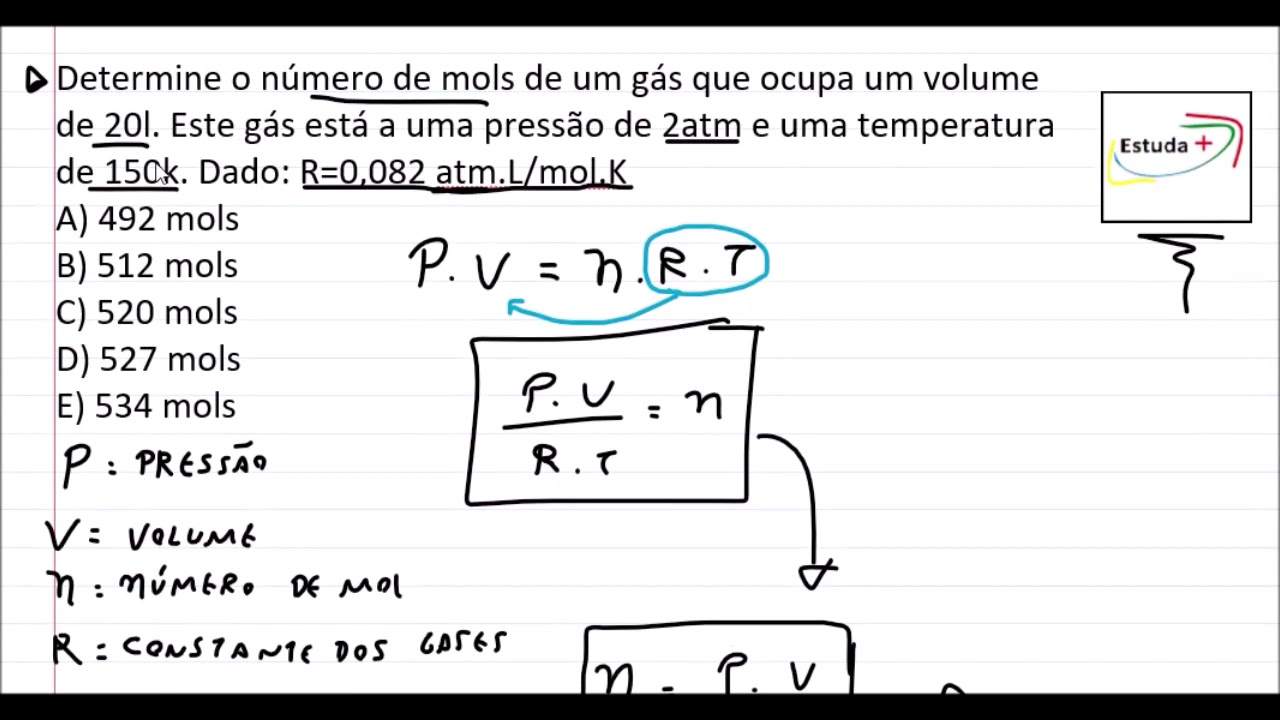 Determine o número de mols de um gás que ocupa um volume
de 20l. Este gás está a uma pressão de 2atm e uma temperatura
de 150k. Dado: R=0,082 atm.L/mol.K
A) 492 mols
B) 512 mols
C) 520 mols
D) 527 mols
E) 534 mols
Estuda +
P.V = n.R.T
P.V
= n
R.T
P: PRESSÃO
V= VOLUME
n: NÚMERO DE MOL
R= CONSTANTE DOS GASES
n = P.V